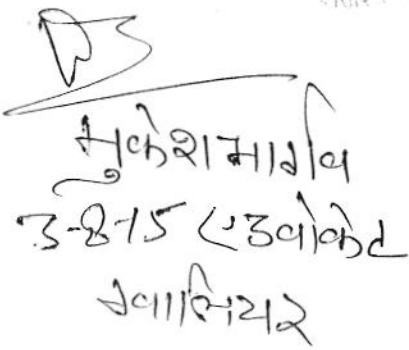 मुकेश भार्गव
3-8-15 एडवोकेट
ग्वालियर